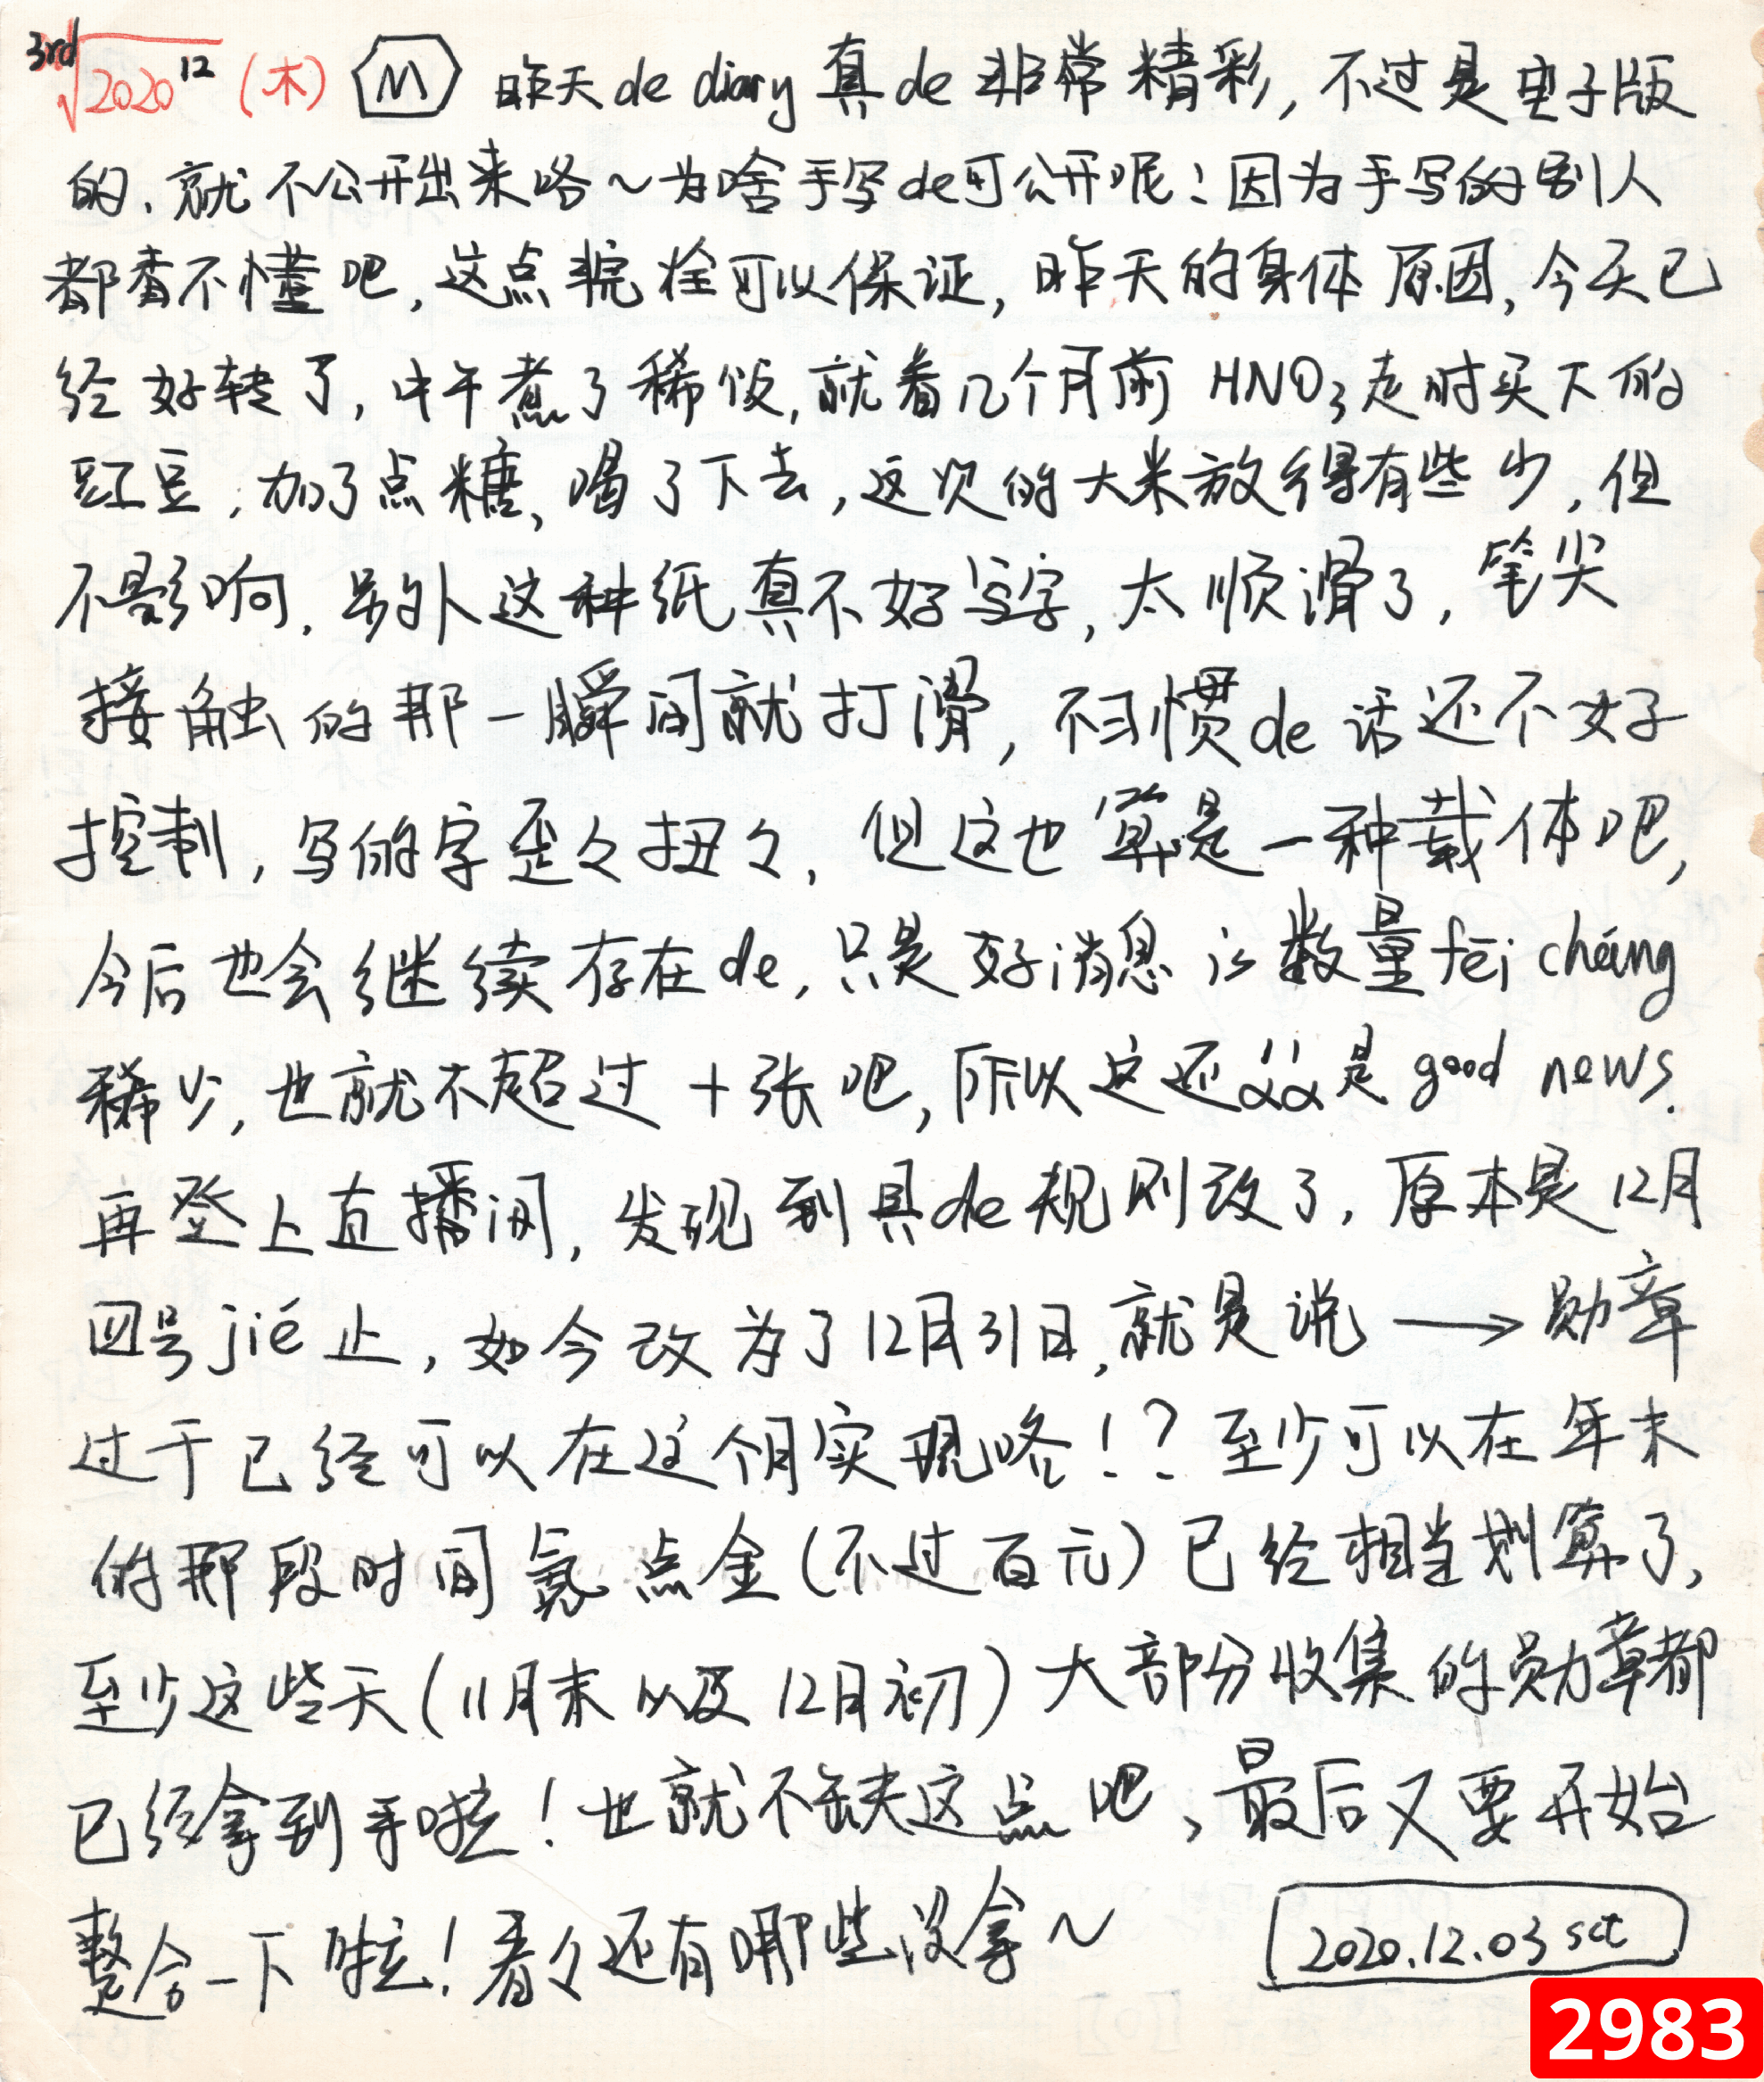 3rd √2020¹² (木) M 昨天de diary真de非常精彩,不过是电子版
的、就不公开出来咯~为啥手写de可公开呢?因为手写的别人
都看不懂吧,这点栓可以保证,昨天的身体原因,今天已
经好转了,中午煮了稀饭,就着几个月前HNO₃走时买下的
豇豆,加了点糖、喝了下去,这次的大米放得有些少,但
不影响.另外这种纸真不好写字,太顺滑了,笔尖
接触的那一瞬间就打滑,不习惯de话还不好
控制,写的字歪々扭々,但这也算是一种载体吧,
今后也会继续存在de,只是好消息is数量fēi cháng
稀少,也就不超过十张吧,所以这还是good news.
再登上直播间,发现到具de规则改了,原本是12月
四号jié止,如今改为了12月31日,就是说→勋章
过千已经可以在这个月实现咯!?至少可以在年末
的那段时间氪点金(不过百元)已经相当划算了,
至少这些天(11月末以及12月初)大部分收集的勋章都
已经拿到手啦!也就不缺这点吧、最后又要开始
整合一下啦!看々还有哪些没拿~
2020.12.03 sct
2983